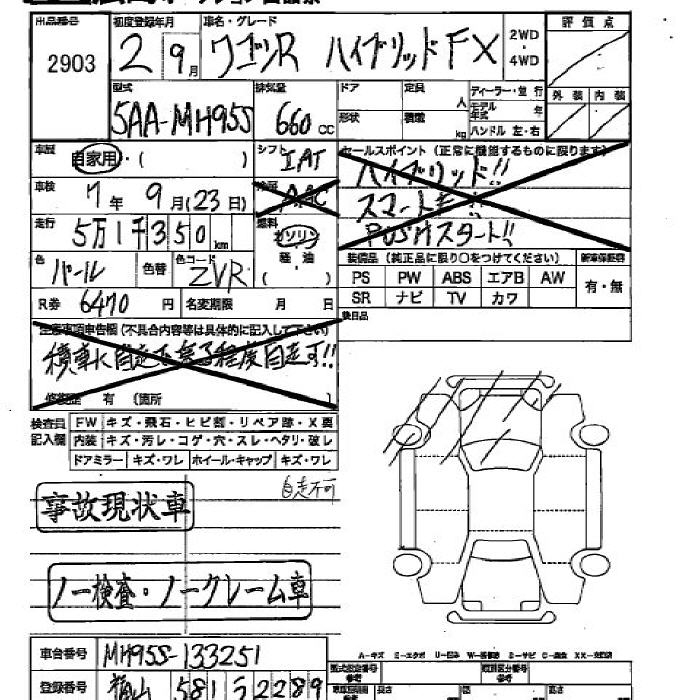 出品番号 初度登録年月 車名・グレード 2WD・4WD 評価点
2903 2 9月 ワゴンR ハイブリッドFX
型式 排気量 ドア 定員 人 ディーラー・並行 外装 内装
5AA-MH95S 660 CC 形状 積載 kg モデル年式 年
ハンドル 左・右
車歴 自家用・( ) シフト IAT セールスポイント (正常に機能するものに限ります)
ハイブリッド!!
車検 7年 9月(23日) 冷房 AAC
スマートキー!!
走行 5万1千350km 燃料 ガソリン 軽油 ( )
PUSHスタート!!
色 パール 色替 色コード ZVR
装備品 (純正品に限り○をつけてください) 新車保証書
PS PW ABS エアB AW 有・無
SR ナビ TV カワ
R券 6470円 名変期限 月 日
後日品
注意事項申告欄 (不具合内容等は具体的に記入して下さい)
積車に自走で乗る程度自走可!!
修復歴 有 (箇所 )
検査員記入欄 FW キズ・飛石・ヒビ割・リペア跡・X要
内装 キズ・汚レ・コゲ・穴・スレ・ヘタリ・破レ
ドアミラー キズ・ワレ ホイール・キャップ キズ・ワレ
自走不可
事故現状車
ノー検査・ノークレーム車
車台番号 MH95S-133251
登録番号 581 う 2289
型式指定番号 参考 類別区分番号 参考
長さ 幅 高さ